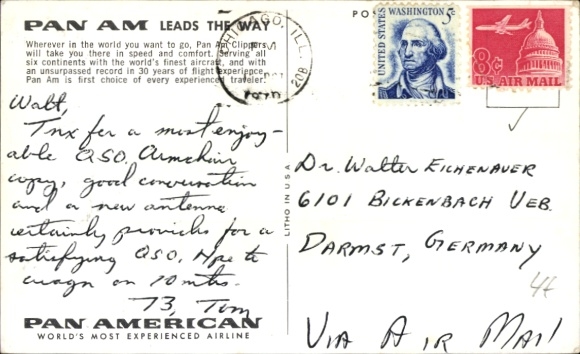 PAN AM LEADS THE WAY
Wherever in the world you want to go, Pan Am Clippers
will take you there in speed and comfort. Serving all
six continents with the world's finest aircraft, and with
an unsurpassed record in 30 years of flight experience,
Pan Am is first choice of every experienced traveler.
Walt,
Tnx for a most enjoy-
able QSO. Armchair
copy, good conversation
and a new antenna
certainly provides for a
satisfying QSO. Hpe to
again on 10 mtrs.
73, Tom
PAN AMERICAN
WORLD'S MOST EXPERIENCED AIRLINE
LITHO IN USA
CHICAGO, ILL.
208
UNITED STATES
WASHINGTON 5c
8c
U.S. AIR MAIL
Dr. Walter Eichenauer
6101 Bickenbach Ueb.
Darmst, Germany
44
Via Air Mail